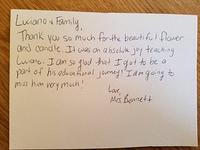 Luciano & Family,
Thank you so much for the beautiful flower
and candle. It was an absolute joy teaching
Luciano. I am so glad that I got to be a
part of his educational journey! I am going to
miss him very much!
Love,
Mrs. Bennett